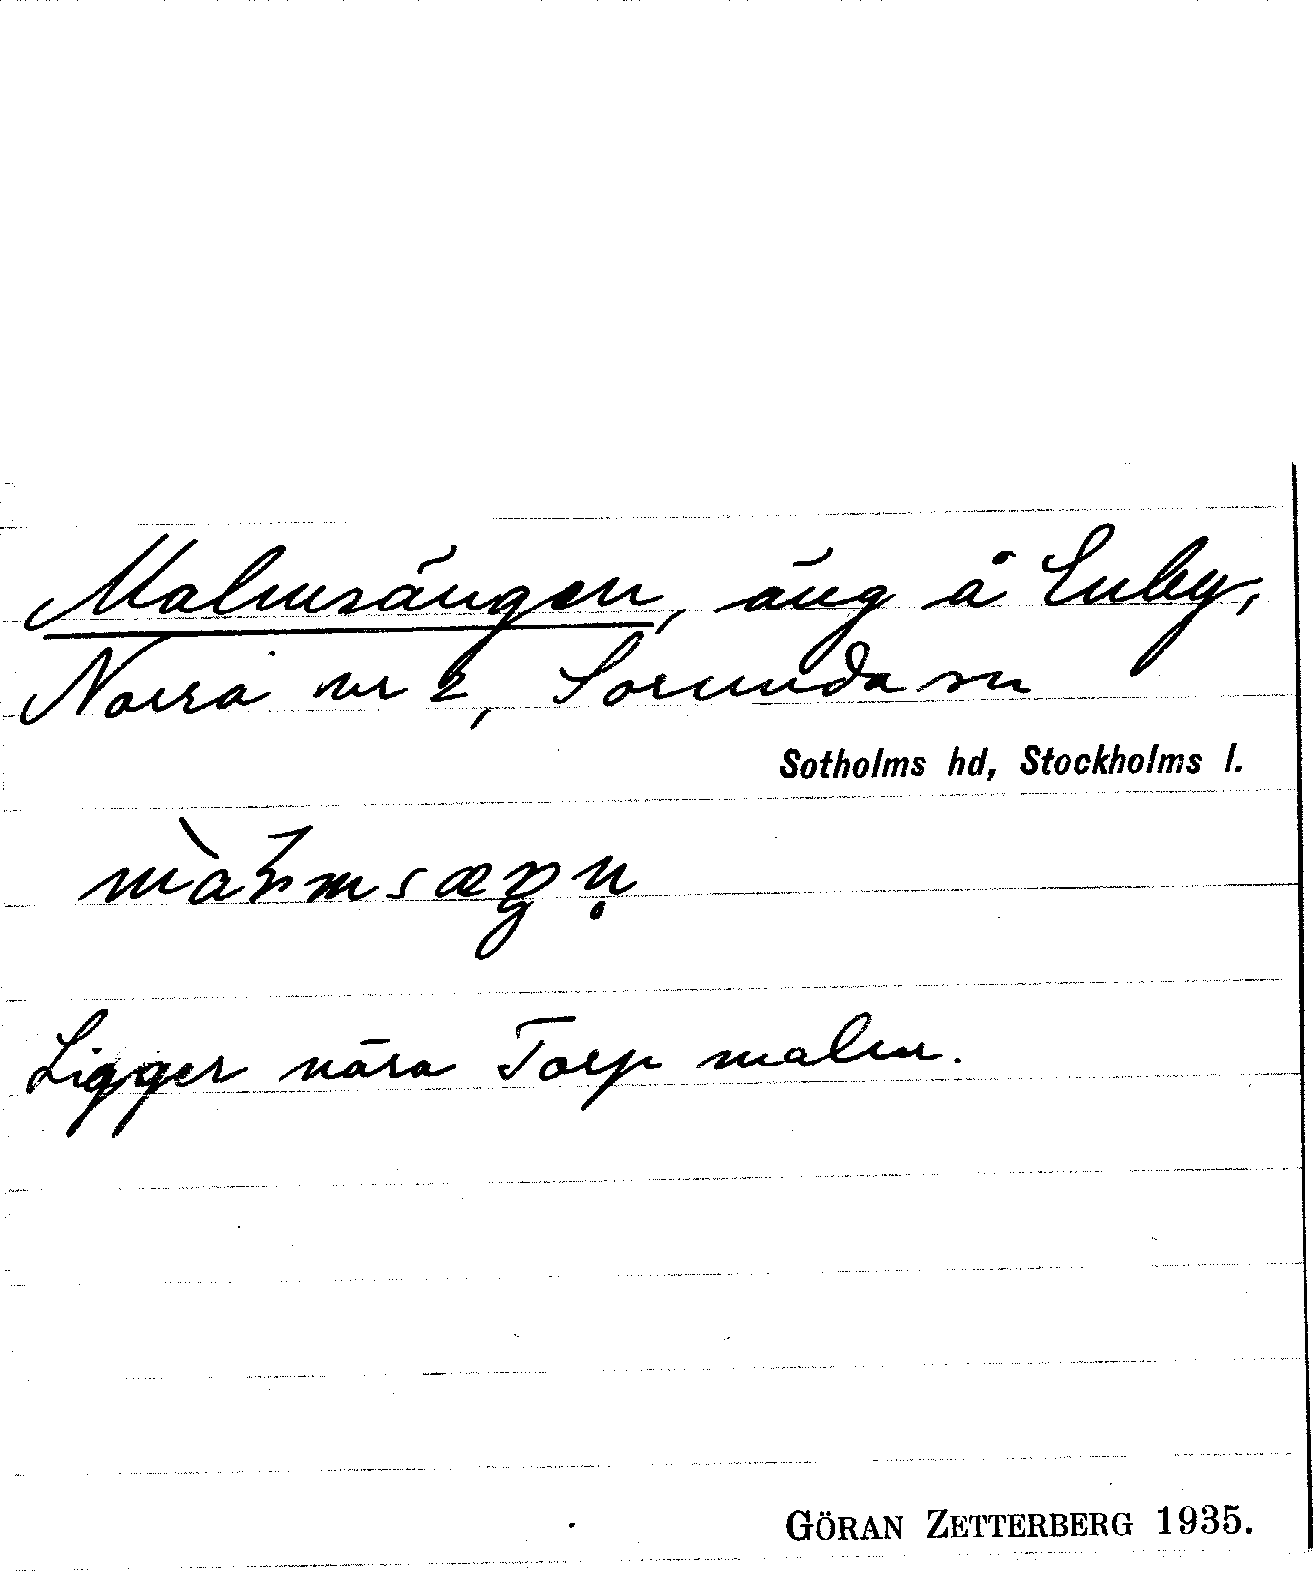 Malmsängen, äng å Enby,
Norra nr 2, Sorunda sn
Sotholms hd, Stockholms l.
Ligger nära Torp malm.
GÖRAN ZETTERBERG 1935.